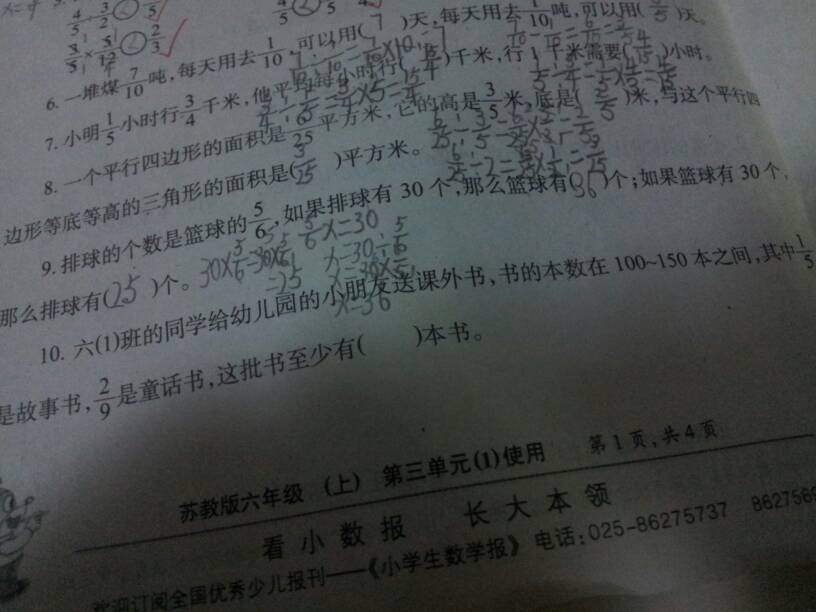 4/5÷3/2 < 4/5
3/5×5/12 < 2/3
6. 一堆煤7/10吨，每天用去1/10，可以用(7)天，每天用去1/10吨，可以用( )天。
7. 小明1/5小时行3/4千米，他平均每小时行(15/4)千米，行1千米需要(4/15)小时。
3/4÷1/5=3/4×5=15/4
8. 一个平行四边形的面积是6/25平方米，它的高是3/5米，底是( )米，与这个平行四
边形等底等高的三角形的面积是(3/25)平方米。
9. 排球的个数是篮球的5/6，如果排球有30个，那么篮球有(36)个；如果篮球有30个，
5/6x=30
x=30÷5/6
x=36
那么排球有(25)个。
=25
10. 六(1)班的同学给幼儿园的小朋友送课外书，书的本数在100~150本之间，其中1/5
是故事书，2/9是童话书，这批书至少有( )本书。
苏教版六年级 (上) 第三单元(1)使用 第1页，共4页
看小数报 长大本领
欢迎订阅全国优秀少儿报刊——《小学生数学报》 电话：025-86275737